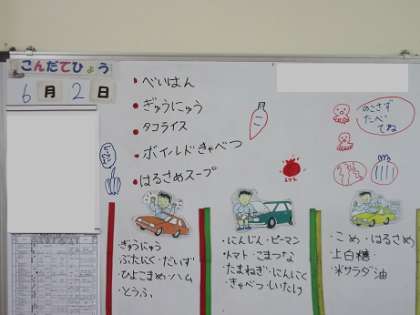 こんだてひょう
6月2日
べいはん
ぎゅうにゅう
タコライス
ボイルドきゃべつ
はるさめスープ
のこさず
たべ
てね
ぎゅうにゅう
ぶたにく・だいず
ひよこまめ・ハム
・とうふ
・にんじん・ピーマン
・トマト・こまつな
・たまねぎ・にんにく
・きゃべつ・しいたけ
・こめ・はるさめ
・上白糖
・米サラダ油